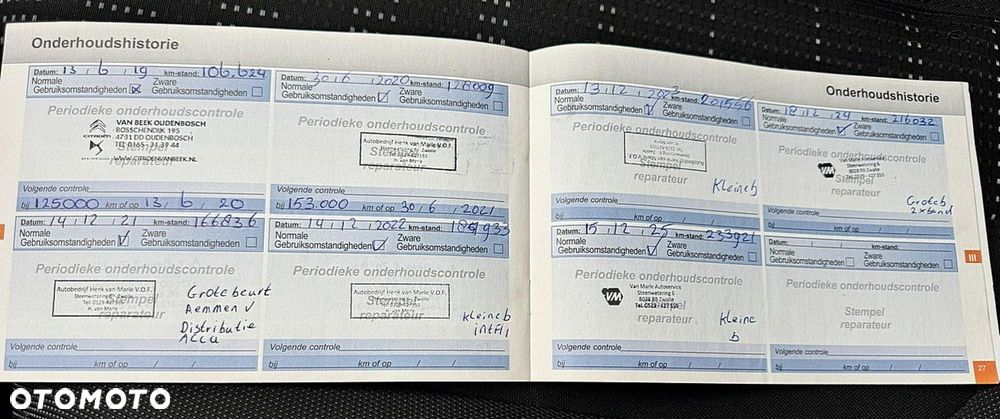 Onderhoudshistorie
Datum: 13 , 6 , 19 km-stand: 106.624
Normale Zware
Gebruiksomstandigheden Gebruiksomstandigheden
Periodieke onderhoudscontrole
VAN BEEK OUDENBOSCH
BOSSCHENDIJK 195
4731 DD OUDENBOSCH
CITROËN TEL 0165 - 31 39 44
DS WWW.CITROENVANBEEK.NL
Volgende controle
bij 125000 km of op 13 , 6 , 20
Datum: 30 , 6 , 2020 km-stand: 128009
Normale Zware
Gebruiksomstandigheden Gebruiksomstandigheden
Periodieke onderhoudscontrole
Autobedrijf Henk van Marle V.O.F.
Steenwetering 6 Zwolle
H. van Marle
Stempel
reparateur
Volgende controle
bij 153.000 km of op 30 , 6 , 2021
Datum: 14 , 12 , 21 km-stand: 166836
Normale Zware
Gebruiksomstandigheden Gebruiksomstandigheden
Periodieke onderhoudscontrole
Autobedrijf Henk van Marle V.O.F.
Steenwetering 6 Zwolle
H. van Marle
Stempel
reparateur
Grote beurt
Remmen V
Distributie
Accu
Volgende controle
bij km of op / /
Datum: 14 , 12 , 2022 km-stand:
Normale Zware
Gebruiksomstandigheden Gebruiksomstandigheden
Periodieke onderhoudscontrole
Autobedrijf Henk van Marle V.O.F.
Steenwetering 6 Zwolle
H. van Marle
Stempel
reparateur
kleine b
Volgende controle
bij km of op / /
Onderhoudshistorie
Datum: 13 , 12 , 2023 km-stand: 201556
Normale Zware
Gebruiksomstandigheden Gebruiksomstandigheden
Periodieke onderhoudscontrole
Autobedrijf Henk van Marle V.O.F.
Stempel
reparateur
Kleine b
Volgende controle
bij km of op / /
Datum: 18 , 12 , 24 km-stand: 216032
Normale Zware
Gebruiksomstandigheden Gebruiksomstandigheden
Periodieke onderhoudscontrole
VM Van Marle Autoservice
Steenwetering 6
8028 RB Zwolle
Tel. 0529 - 427 555
Stempel
reparateur
Grote b
Volgende controle
bij km of op / /
Datum: 15 , 12 , 25 km-stand: 233921
Normale Zware
Gebruiksomstandigheden Gebruiksomstandigheden
Periodieke onderhoudscontrole
VM Van Marle Autoservice
Steenwetering 6
8028 RB Zwolle
Tel. 0529 - 427 555
Stempel
reparateur
Kleine
b
Volgende controle
bij km of op / /
Datum: / / km-stand:
Normale Zware
Gebruiksomstandigheden Gebruiksomstandigheden
Periodieke onderhoudscontrole
Stempel
reparateur
Volgende controle
bij km of op / /
III
27
OTOMOTO